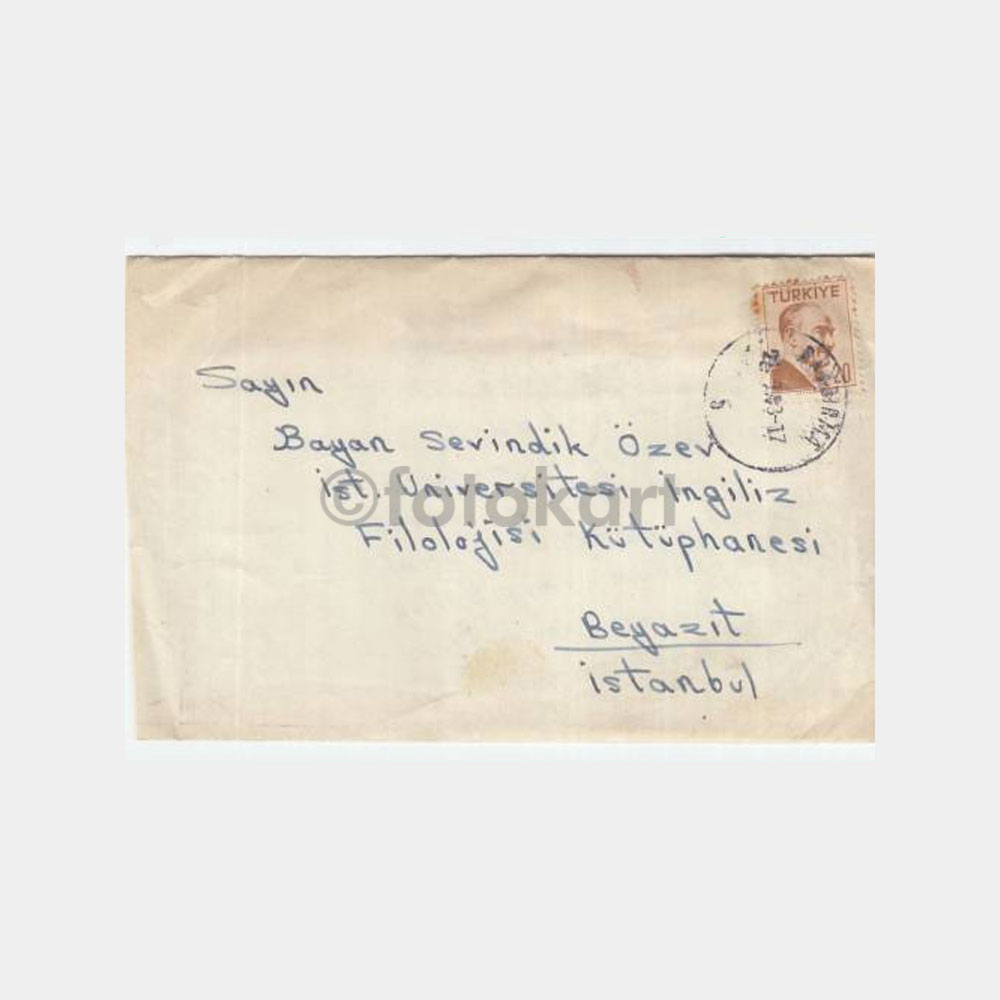 TÜRKİYE
20
Sayın
Bayan Sevindik Özer
İst. Üniversitesi İngiliz
Filolojisi Kütüphanesi
Beyazıt
İstanbul
©fotokart